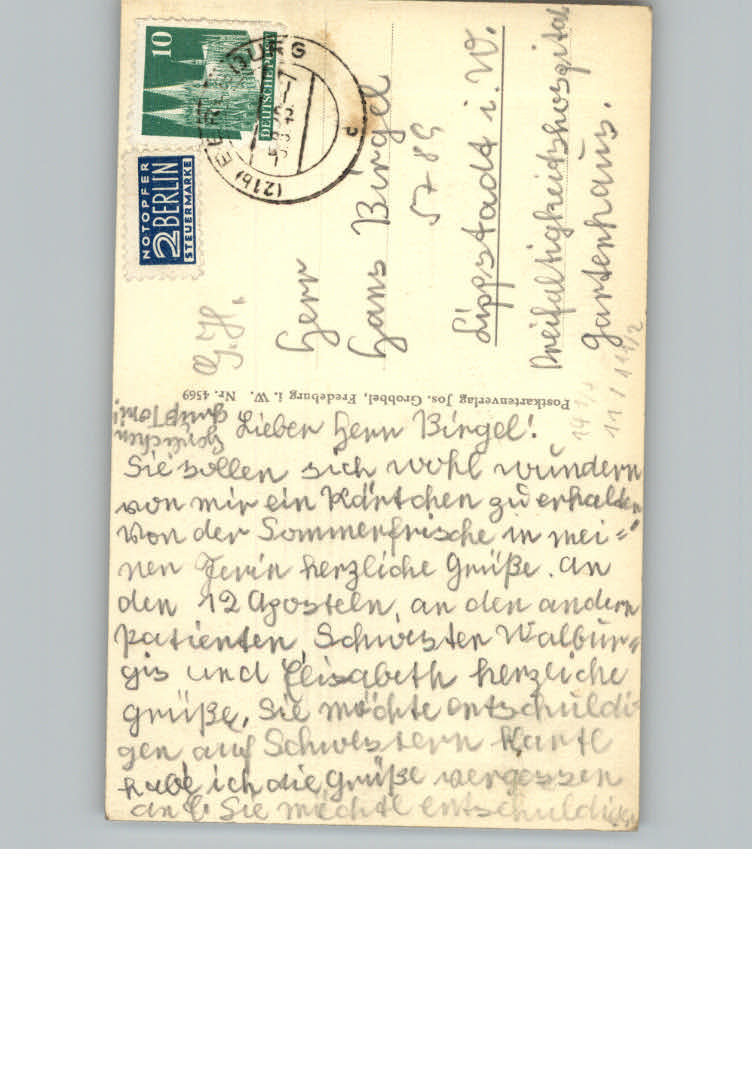 10
DEUTSCHE POST
NOTOPFER
2 BERLIN
STEUERMARKE
(21b)
G.H.
Herr
Hans Birgel
Lippstadt i. W.
Dreifaltigkeitshospital
Gartenhaus.
Postkartenverlag Jos. Grobbel, Fredeburg i. W. Nr. 4569
Lieber Herr Birgel!
Sie sollen sich wohl wundern
von mir ein Kärtchen zu erhalten
Von der Sommerfrische in mei=
nen Ferin herzliche Grüße. An
den 12 Aposteln, an den andern
Patienten, Schwester Walbur=
gis und Elisabeth herzliche
Grüße. Sie möchte entschuldi
gen auf Schwestern Karte
habe ich die Grüße vergessen
Sie möchte entschuldigen